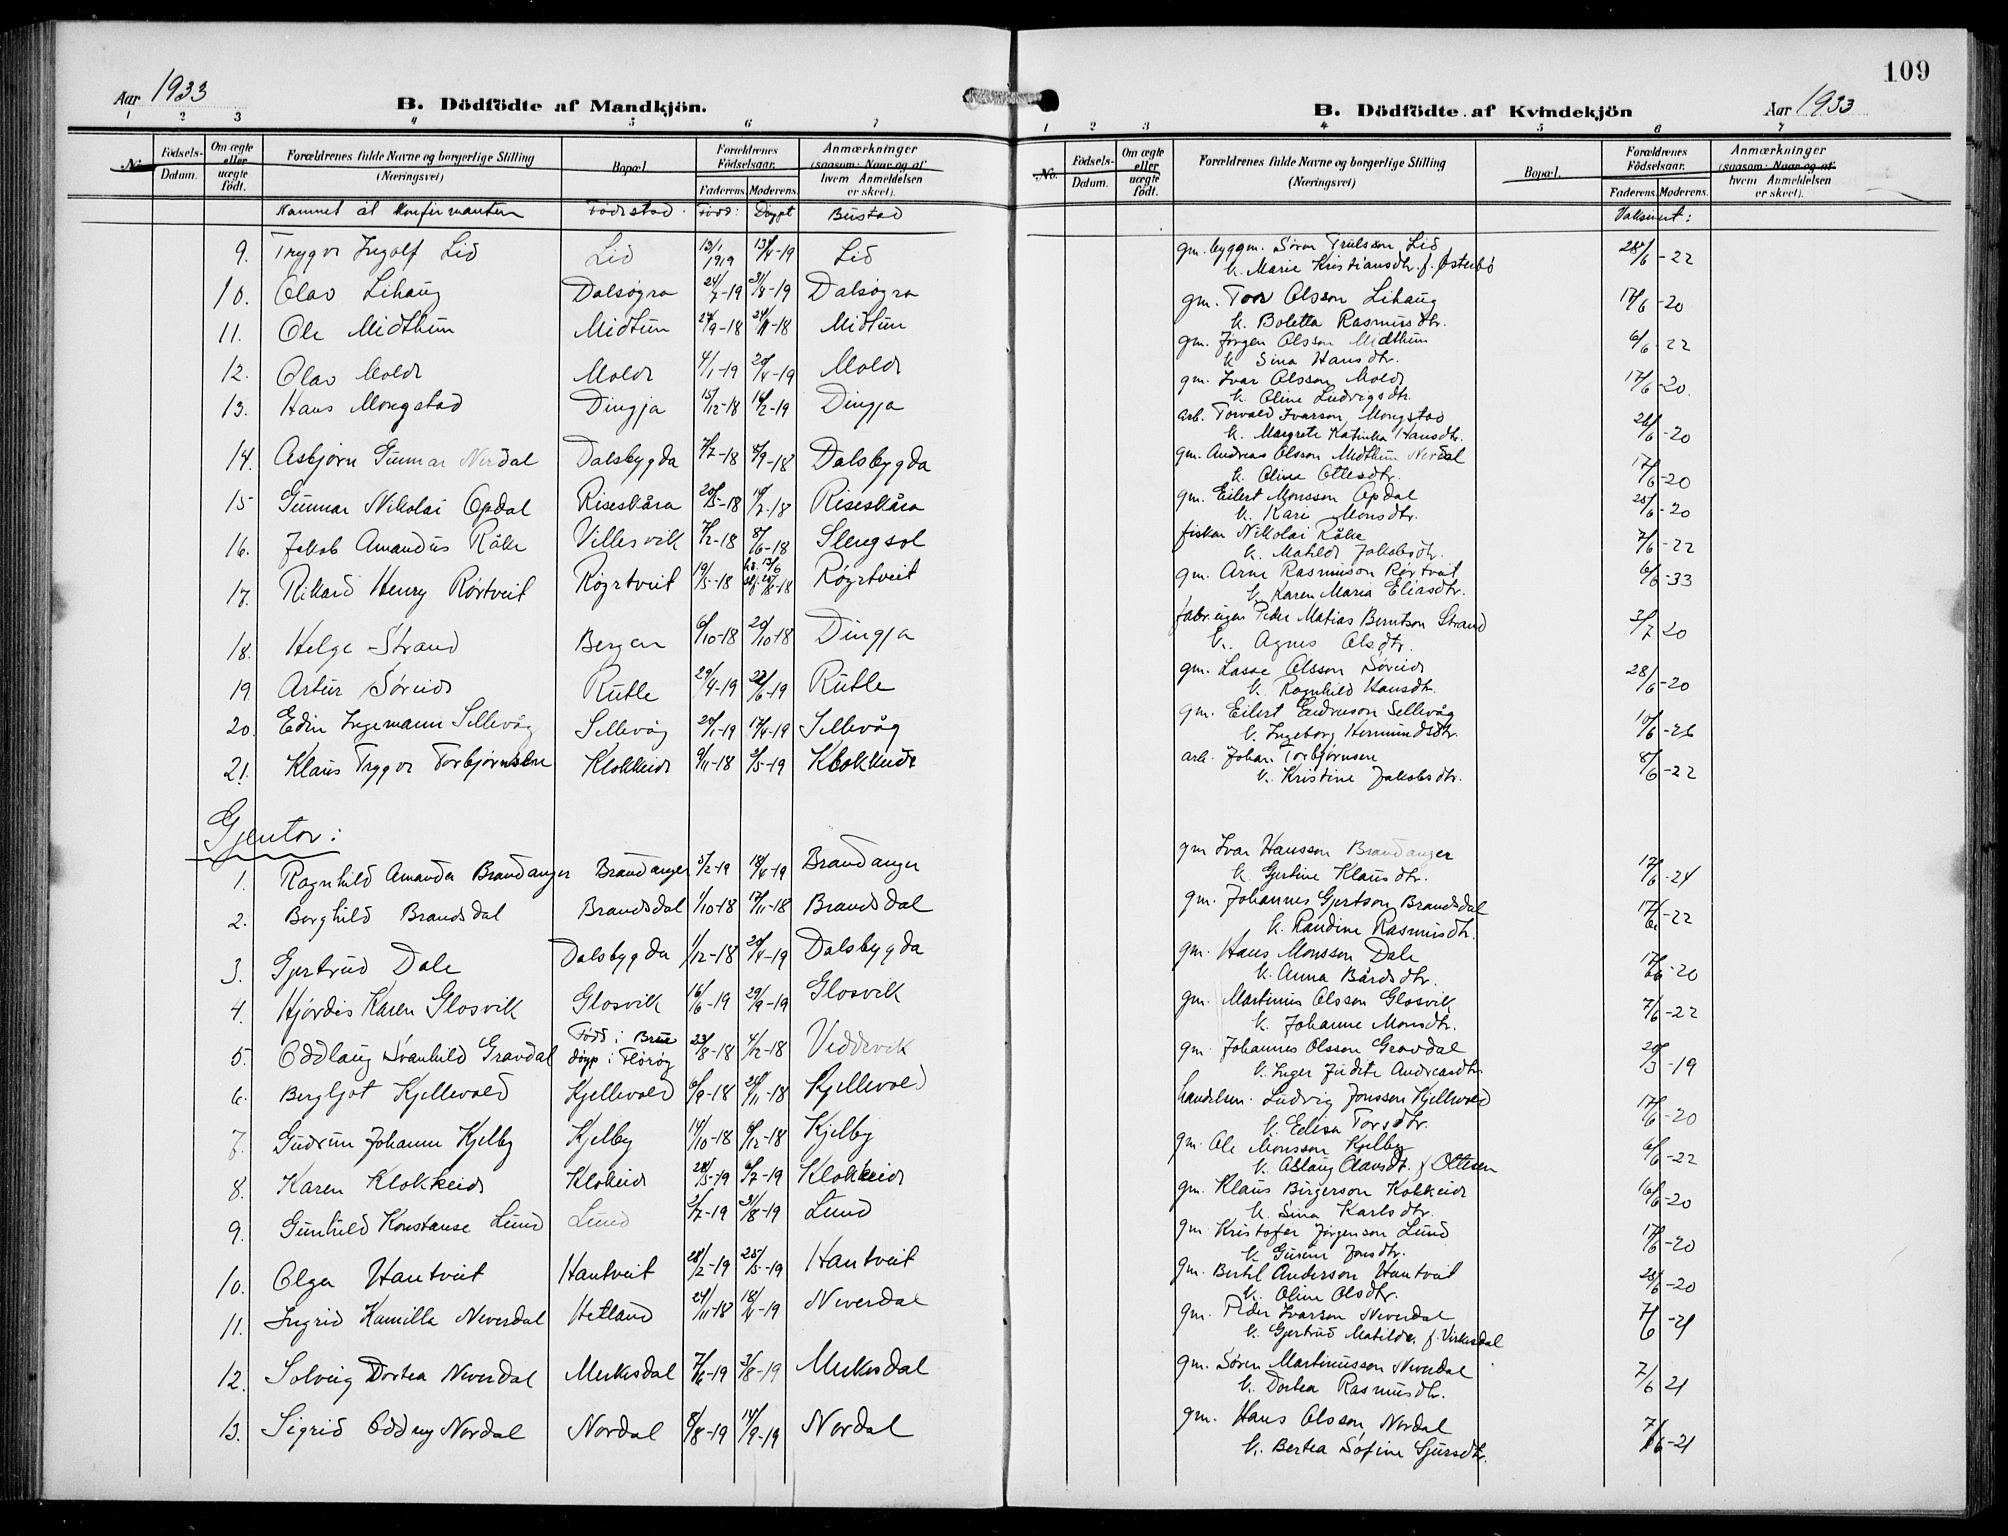 Aar 1933
B. Dödfödte af Mandkjön.
1 2 3 4 5 6 7
No. Födsels-Datum. Om ægte eller uægte født. Forældrenes fulde Navne og borgerlige Stilling (Næringsvei) Bopæl. Forældrenes Födselsaar. Faderens. Moderens. Anmærkninger (saasom: Naar og af hvem Anmeldelsen er skeet).
Namnet åt konfirmanten Fødestad. Fødd: Døypt Bustad
9. Trygve Ingolf Lid Lid 13/1 1919 13/4-19 Lid
10. Olav Lihaug Dalsøgra 24/7-19 31/8-19 Dalsøgra
11. Ole Midthun Midtun 24/9-18 24/11-18 Midtun
12. Olav Molde Molde 4/1-19 20/4-19 Molde
13. Hans Mongstad Dingja 15/12-18 16/2-19 Dingja
14. Asbjørn Gunnar Nerdal Dalsbygda 7/7-18 8/9-18 Dalsbygda
15 Gunnar Nikolai Opdal Riseskåra 20/5-18 14/7-18 Riseskåra
16. Jakob Amandus Råke Villesvik 7/2-18 8/6-18 Slengsol
17. Rikard Henry Rørtveit Røyrtveit 19/5-18 Røyrtveit
18. Helge Strand Bergen 6/10-18 20/10-18 Dingja
19. Artur Søreide Rutle 29/4-19 22/6-19 Rutle
20. Edin Ingemann Sellevåg Sellevåg 20/1-19 17/4-19 Sellevåg
21. Klaus Trygve Torbjørnsen Klokkeide 9/11-18 2/5-19 Klokkeide
Gjentor:
1. Ragnhild Amanda Brandanger Brandanger 5/2-19 18/4-19 Brandanger
2. Borghild Brandsdal Brandsdal 1/10-18 17/11-18 Brandsdal
3. Gjertrud Dale Dalsbygda 1/12-18 20/4-19 Dalsbygda
4. Hjørdis Karen Glosvik Glosvik 16/6-19 29/9-19 Glosvik
5. Oddlaug Svanhild Gravdal Fødd i Brue døyp i Florøy 23/8-18 4/12-18 Veddevik
6. Bergljot Kjellevold Kjellevold 6/9-18 24/11-18 Kjellevold
7. Gudrun Johanne Kjelby Kjelby 14/10-18 6/12-18 Kjelby
8. Karen Klokkeide Klokeide 28/5-19 6/7-19 Klokkeide
9. Gunhild Konstanse Lund Lund 2/7-19 31/8-19 Lund
10. Olga Hantveit Hantveit 28/2-19 25/5-19 Hantveit
11. Ingrid Kamilla Neverdal Hetland 24/11-18 18/4-19 Neverdal
12. Solveig Dortea Neverdal Mukesdal 7/6-19 3/8-19 Mukesdal
13. Sigrid Oddny Nordal Nordal 8/8-19 14/9-19 Nordal
109
B. Dödfödte af Kvindekjön
Aar 1933
1 2 3 4 5 6 7
No. Födsels-Datum. Om ægte eller uægte født. Forældrenes fulde Navne og borgerlige Stilling (Næringsvei) Bopæl. Forældrenes Födselsaar. Faderens. Moderens. Anmærkninger (saasom: Naar og af hvem Anmeldelsen er skeet).
Vaksinert:
gm. byggm. Søren Trulsson Lid 28/6-22
k. Marie Kristiansdtr. f. Østerbø
gm. Tore Olsson Lihaug 17/6-20
k. Boletta Rasmusdtr.
gm. Jørgen Olsson Midthun 6/6-22
k. Sina Hansdtr.
gm. Ivar Olsson Molde 17/6-20.
k. Oline Ludvigsdtr.
arb. Torvald Ivarson Mongstad 26/6-20
k. Margrete Katinka Hansdtr.
gm. Andreas Olsson Midthun Nerdal 17/6-20
k. Oline Ottesdtr.
gm. Eilert Monsson Opdal 25/6-20
k. Kari Monsdtr.
fiskar Nikolai Råke 7/6-22
k. Matilde Jakobsdtr.
gm. Arne Rasmusson Rørtveit 6/6-33
k. Karen Maria Eliasdtr.
fabr.eigar Peder Matias Berntson Strand 2/7-20
k. Agnes Olsdtr.
gm. Lasse Olsson Søreide 28/6-20
k. Ragnhild Hansdtr.
gm. Eilert Endreson Sellevåg 10/6-26
k. Ingeborg Hermundsdtr.
arb. Johan Torbjørnsen 8/6-22
k. Kristine Jakobsdtr.
gm Ivar Hansson Brandanger 17/6-24
k. Gjertine Klausdtr.
gm. Johannes Gjertson Brandsdal 17/6-22
k. Randine Rasmusdtr.
gm. Hans Monsson Dale 17/6-20
k. Anna Bårdsdtr.
gm. Martinus Olsson Glosvik 7/6-22
k. Johanne Monsdtr.
gm. Johannes Olsson Gravdal 20/3-19
k. Inger Judite Andreasdtr.
handelsm. Ludvig Jonsson Kjellevold 17/6-20
k. Edisa Torsdtr.
gm. Ole Monsson Kjelby 6/6-22
k. Aslaug Olavsdt. f Ottesen
gm. Klaus Birgerson Kokkeide 16/6-20
k. Sina Karlsdtr.
gm. Kristofer Jørgenson Lund 17/6-20
k. Gurine Jonsdtr.
gm. Bertel Anderson Hantveit 25/6-20
k. Oline Olsdtr.
gm. Peder Ivarson Neverdal 7/6-21
k. Gjertrud Matilde f. Virkesdal
gm. Søren Martinusson Neverdal 7/6 21
k. Dortea Rasmusdtr.
gm. Hans Olsson Nordal 7/6-21
k. Bertea Sofine Sjursdtr.